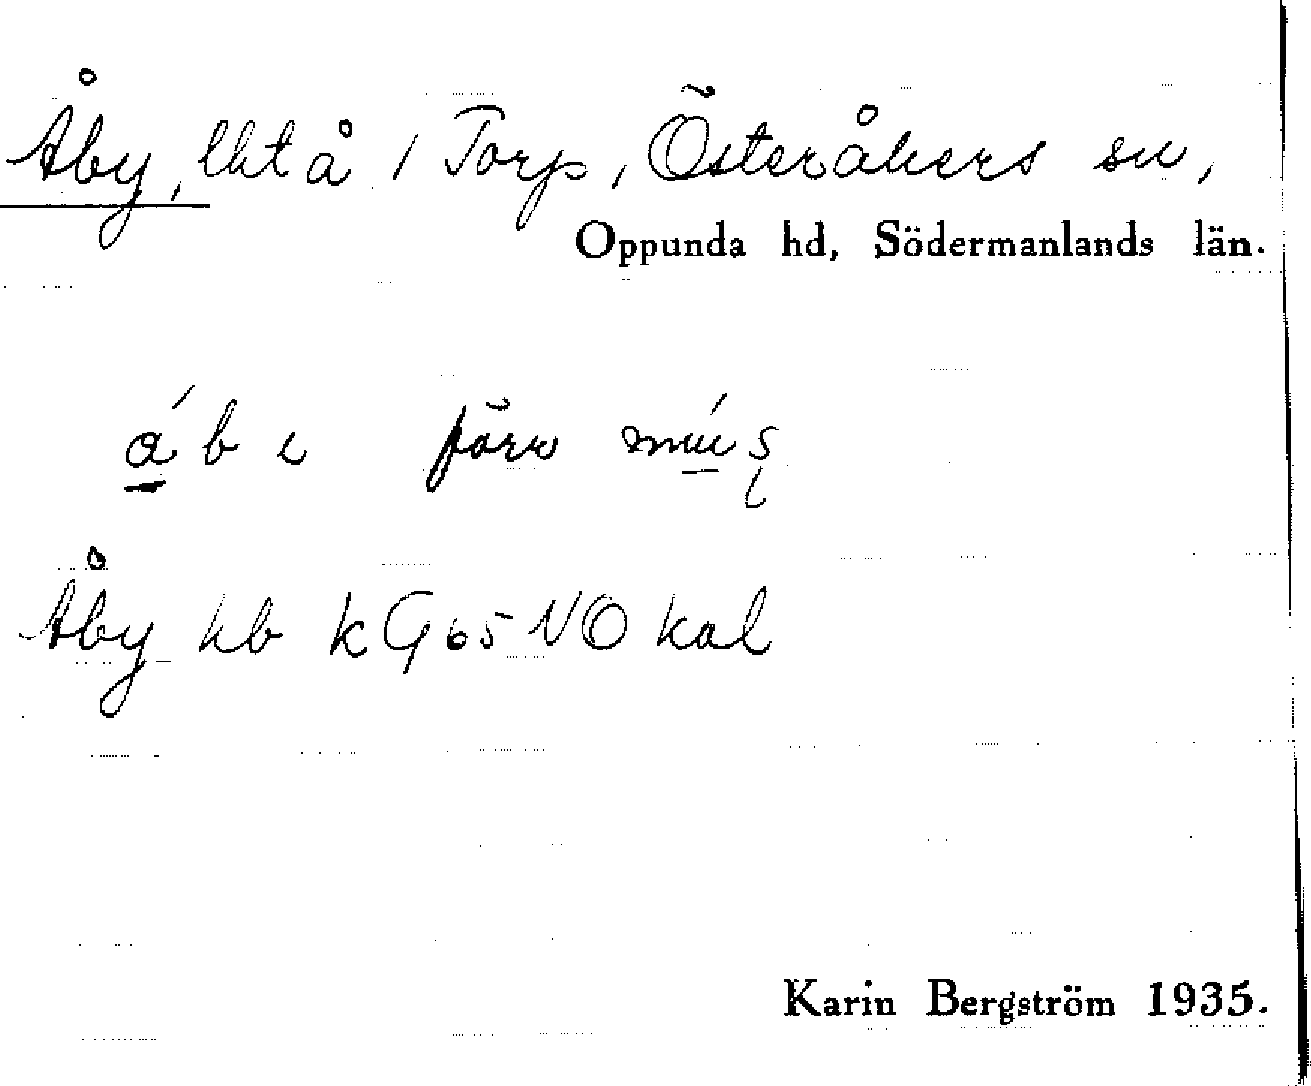 Åby, lht å 1 Torp, Österåkers sn,
Oppunda hd, Södermanlands län.
Åby hb kG 65 NO kal
Karin Bergström 1935.